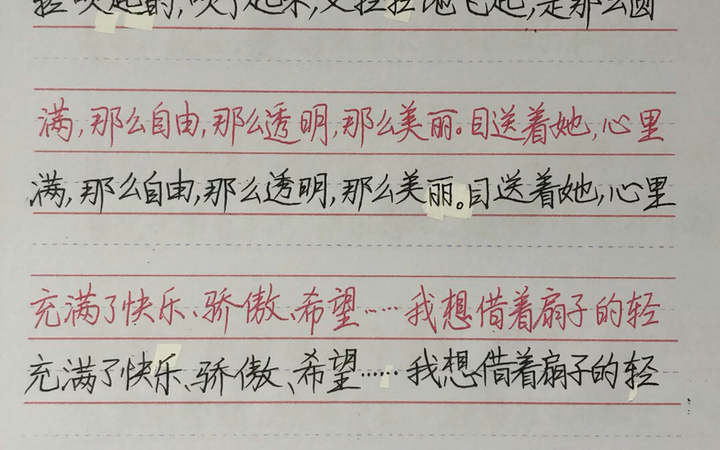 轻吹起的,吹了起来,又轻轻地飞起,是那么圆
满,那么自由,那么透明,那么美丽。目送着她,心里
满,那么自由,那么透明,那么美丽。目送着她,心里
充满了快乐、骄傲、希望……我想借着扇子的轻
充满了快乐、骄傲、希望……我想借着扇子的轻